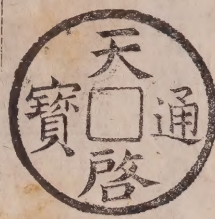 天啓通寶